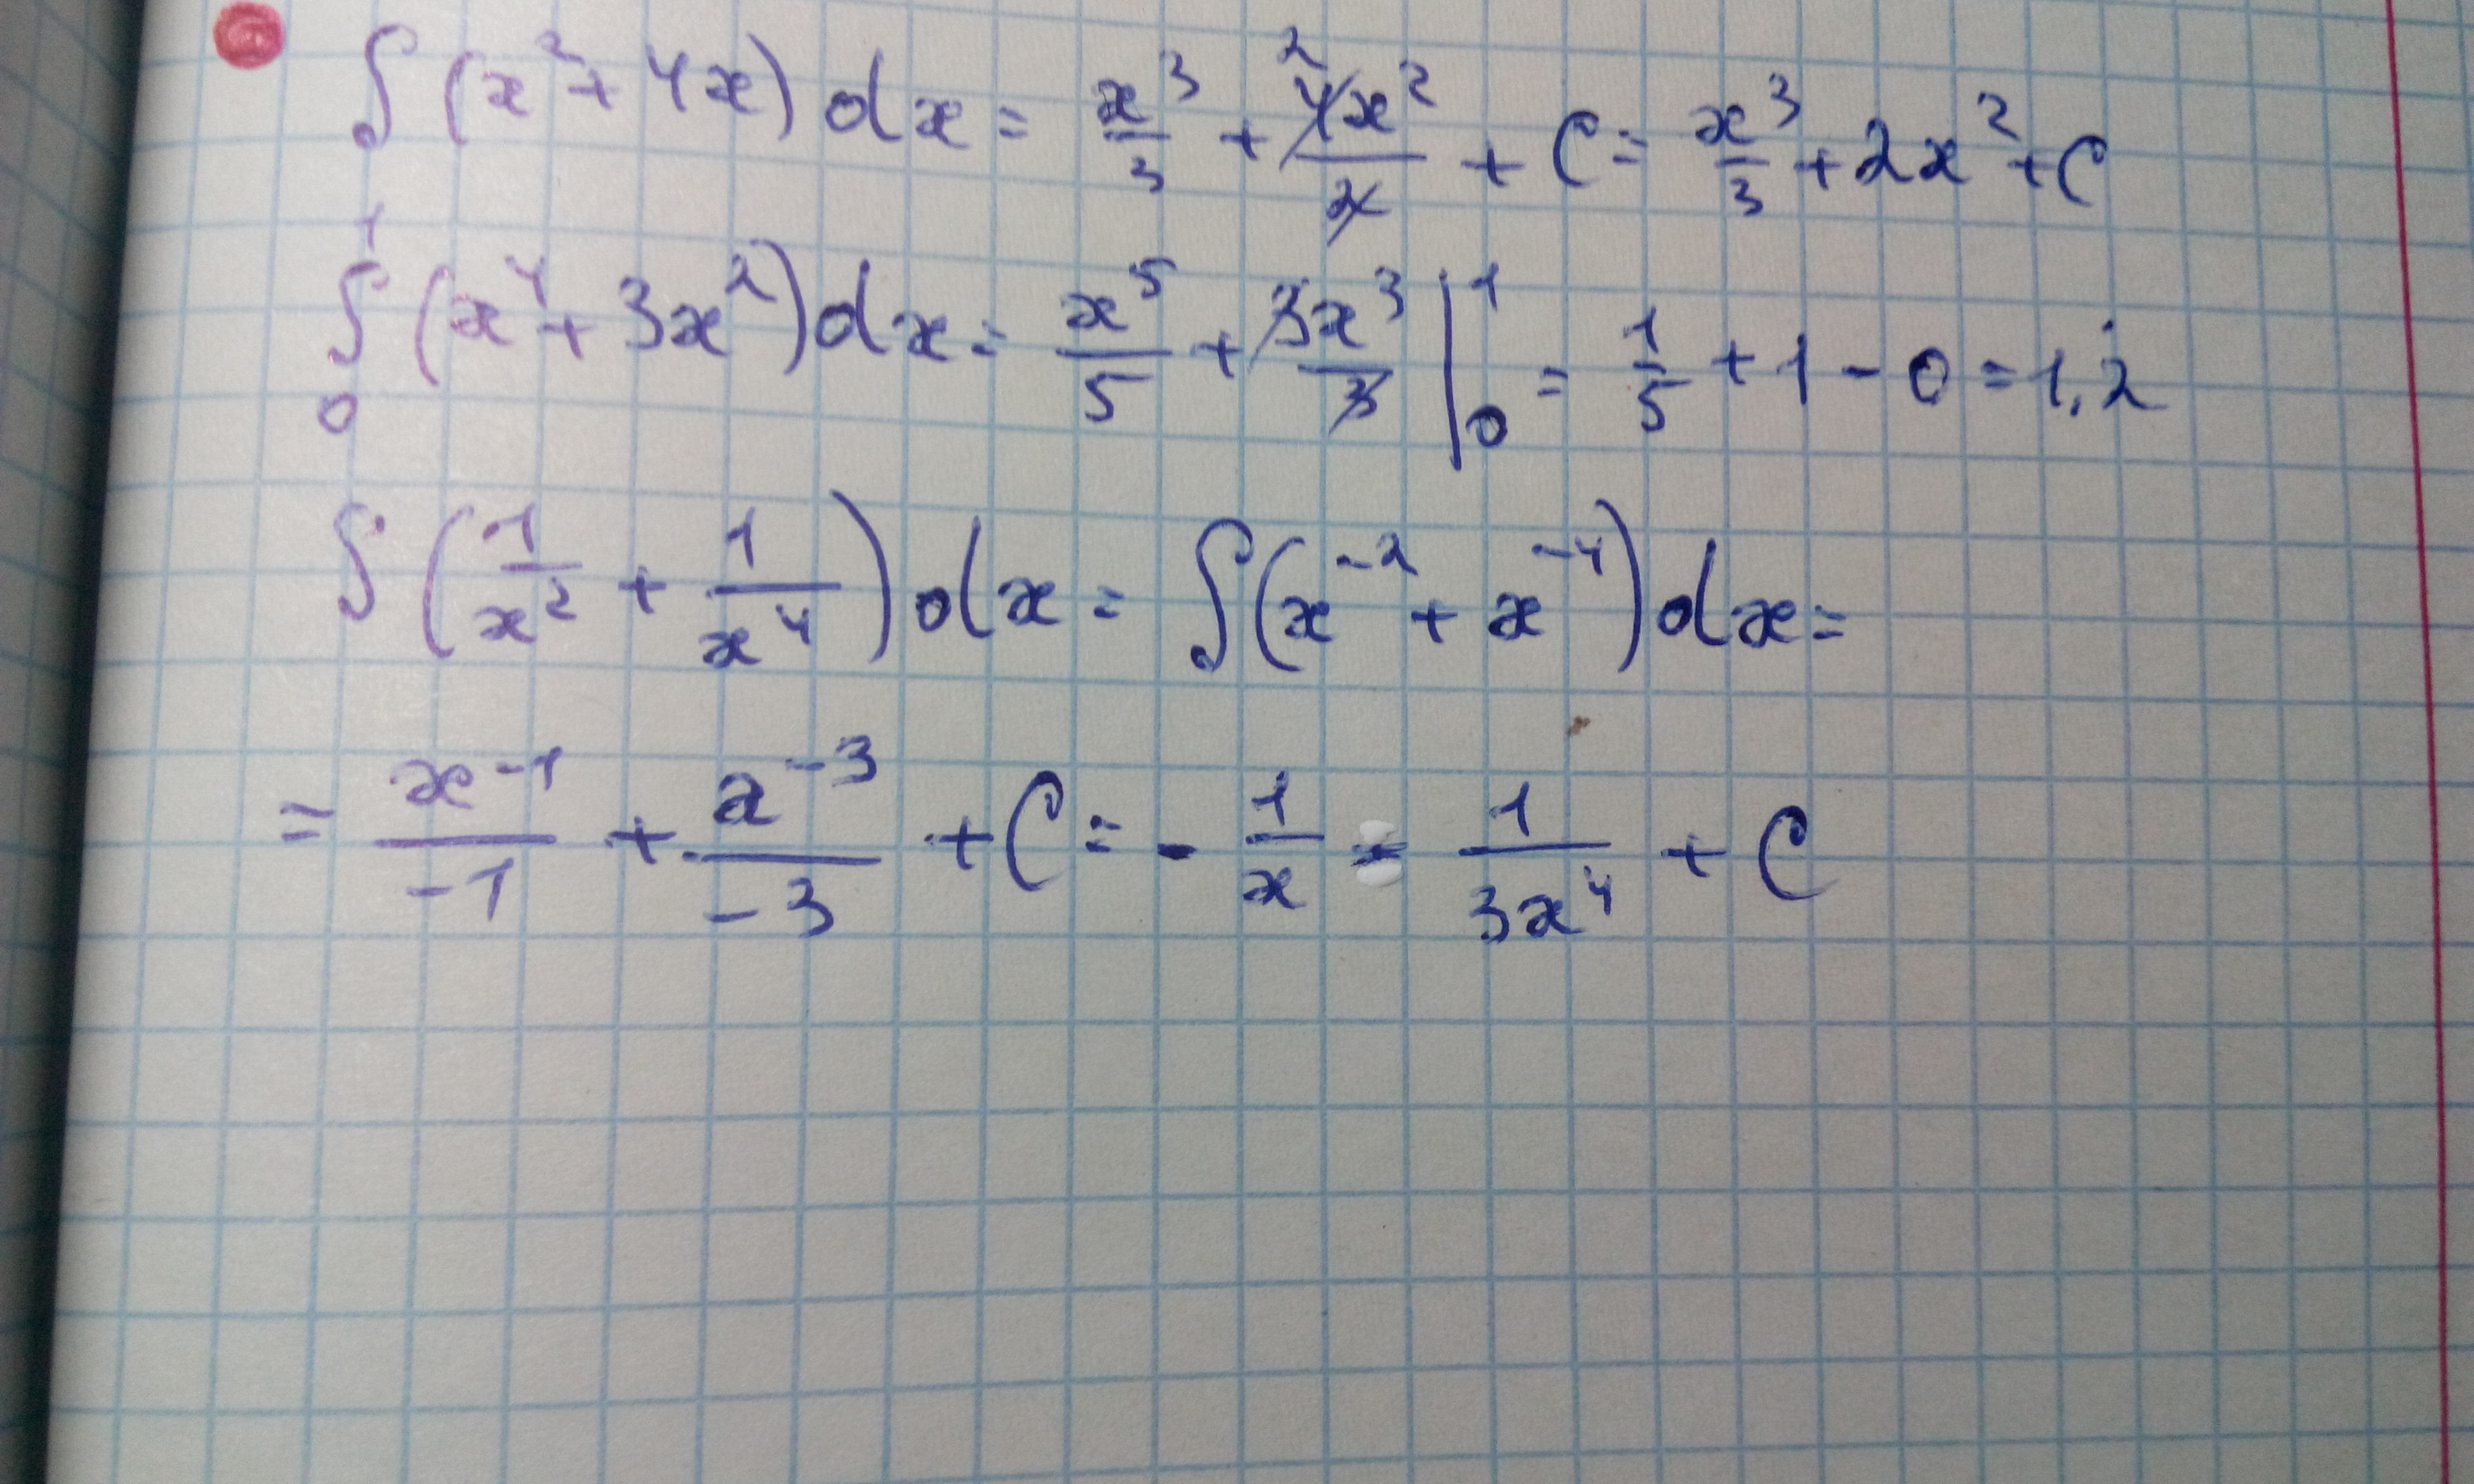 ∫ (x² + 4x) dx = x³/3 + 4x²/2 2 + C = x³/3 + 2x² + C
∫₀¹ (x⁴ + 3x²) dx = x⁵/5 + 3x³/3 |₀¹ = 1/5 + 1 - 0 = 1,2
∫ (1/x² + 1/x⁴) dx = ∫ (x⁻² + x⁻⁴) dx =
= x⁻¹/-1 + x⁻³/-3 + C = - 1/x - 1/3x⁴ + C